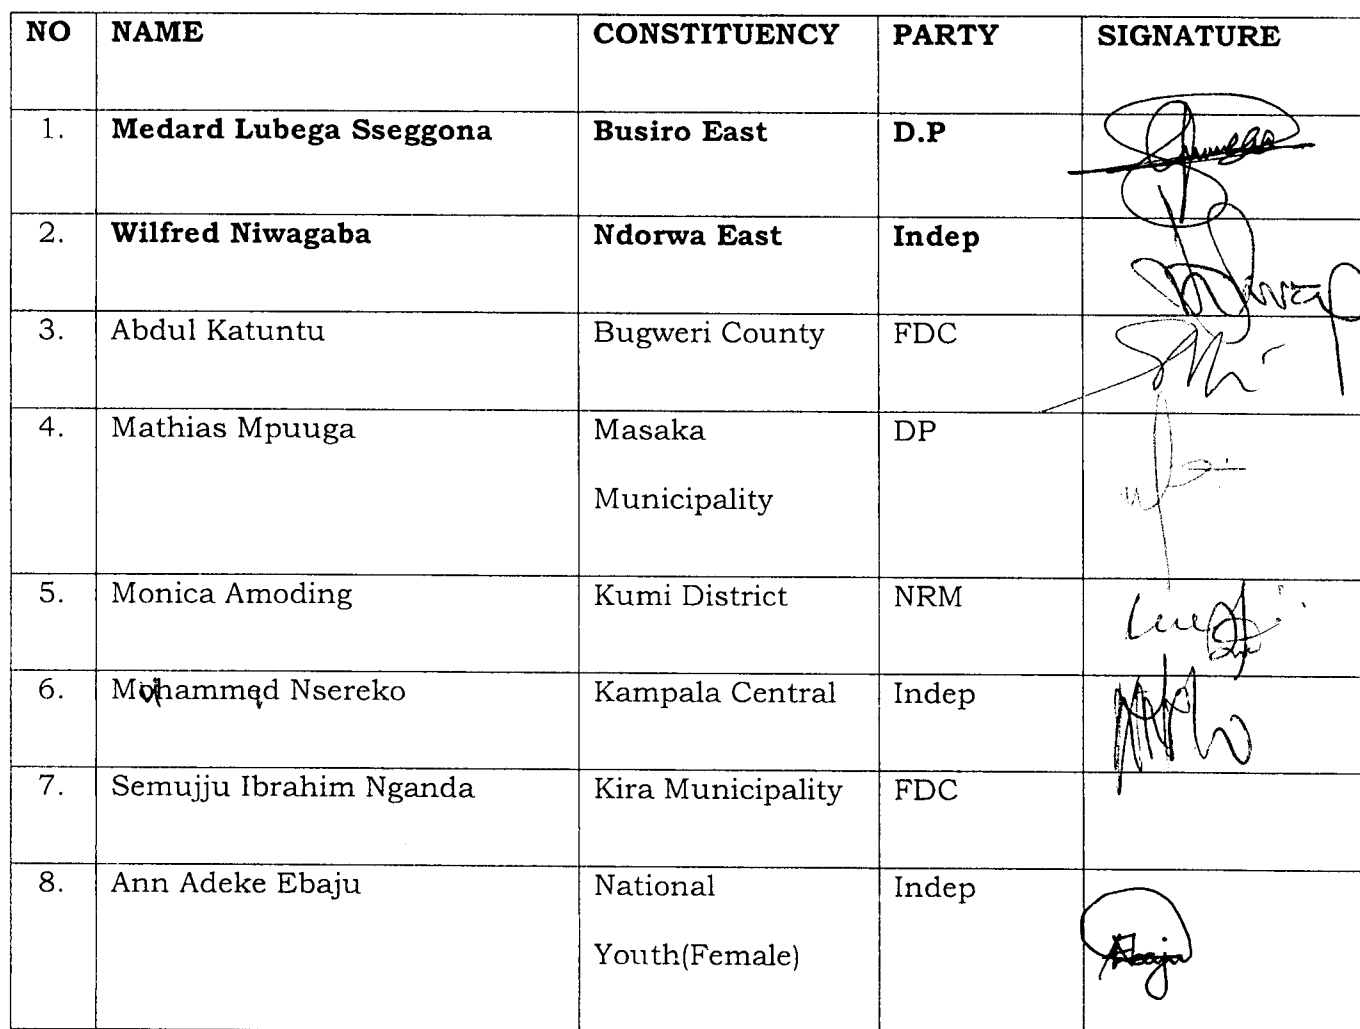 NO NAME CONSTITUENCY PARTY SIGNATURE
1. Medard Lubega Sseggona Busiro East D.P
2. Wilfred Niwagaba Ndorwa East Indep
3. Abdul Katuntu Bugweri County FDC
4. Mathias Mpuuga Masaka DP
Municipality
5. Monica Amoding Kumi District NRM
6. Mohammed Nsereko Kampala Central Indep
7. Semujju Ibrahim Nganda Kira Municipality FDC
8. Ann Adeke Ebaju National Indep
Youth(Female)